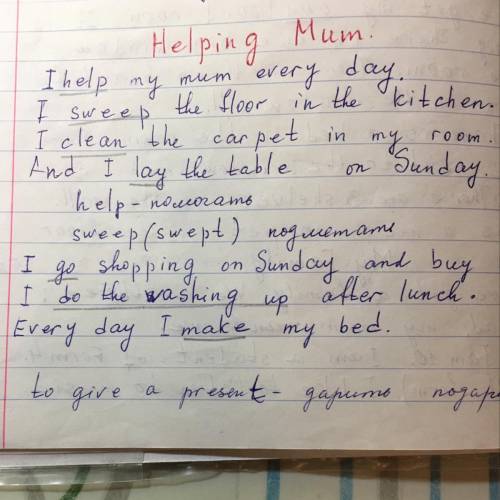 Helping Mum.
I help my mum every day.
I sweep the floor in the kitchen.
I clean the carpet in my room.
And I lay the table on Sunday.
help - помогать
sweep (swept) подметать
I go shopping on Sunday and buy
I do the washing up after lunch.
Every day I make my bed.
to give a present - дарить